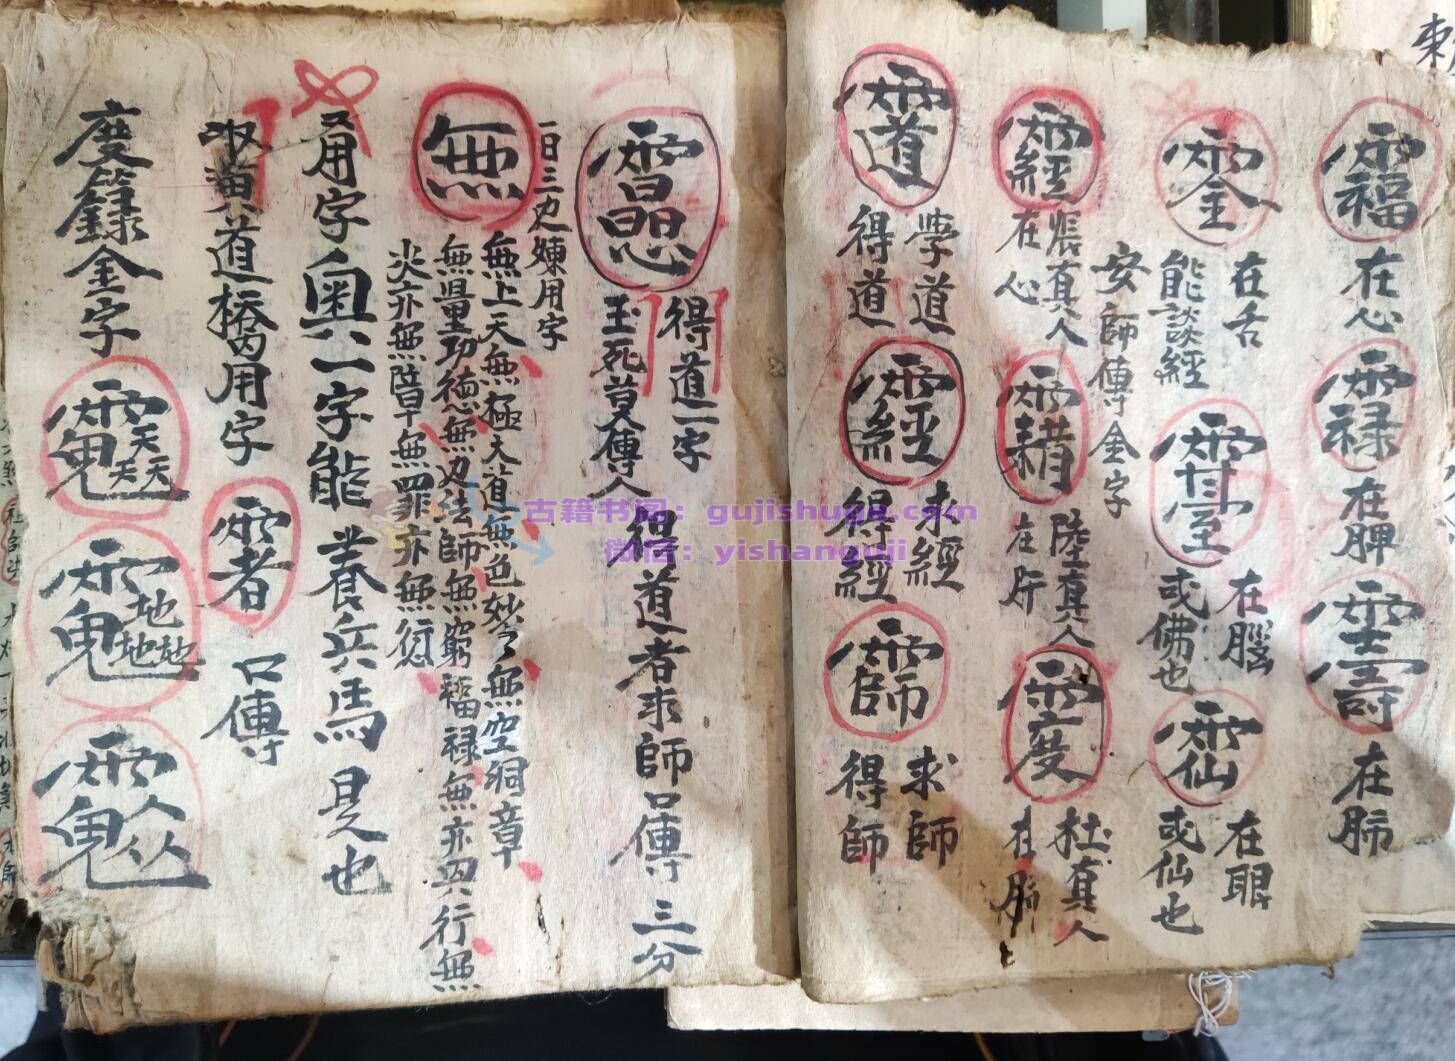 ⿱雨福 在心 ⿱雨禄 在脾 ⿱雨壽 在肺
⿱雨金 在舌
能談經
在腦
或佛也
⿱雨仙 在眼
或仙也
安師傳金字
⿱雨經 張真人
在心
⿱雨耤 陸真人
在肝
⿱雨度 杜真人
在肺
⿱雨道 學道
得道
⿱雨經 求經
得經
⿱雨師 求師
得師
得道一字
玉死莫傳人
得道者求師口傳三分
一日三边煉用字
無 無上天無極大道無色妙之無空洞章
無量功德無边法師無窮福禄無亦无行無
災亦無階干無罪亦無愆
用字奥一字能養兵馬是也
收黃道橋内用字 ⿱雨者 口傳
度籙金字
古籍书阁：gujishuge.com
微信：yishanguji